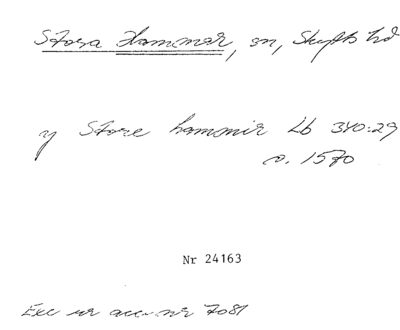 Stora Hammar, sn, Skytts hd
y Store hammir Lb 340:29
o. 1570
Nr 24163
Exc ur acc. nr 7081